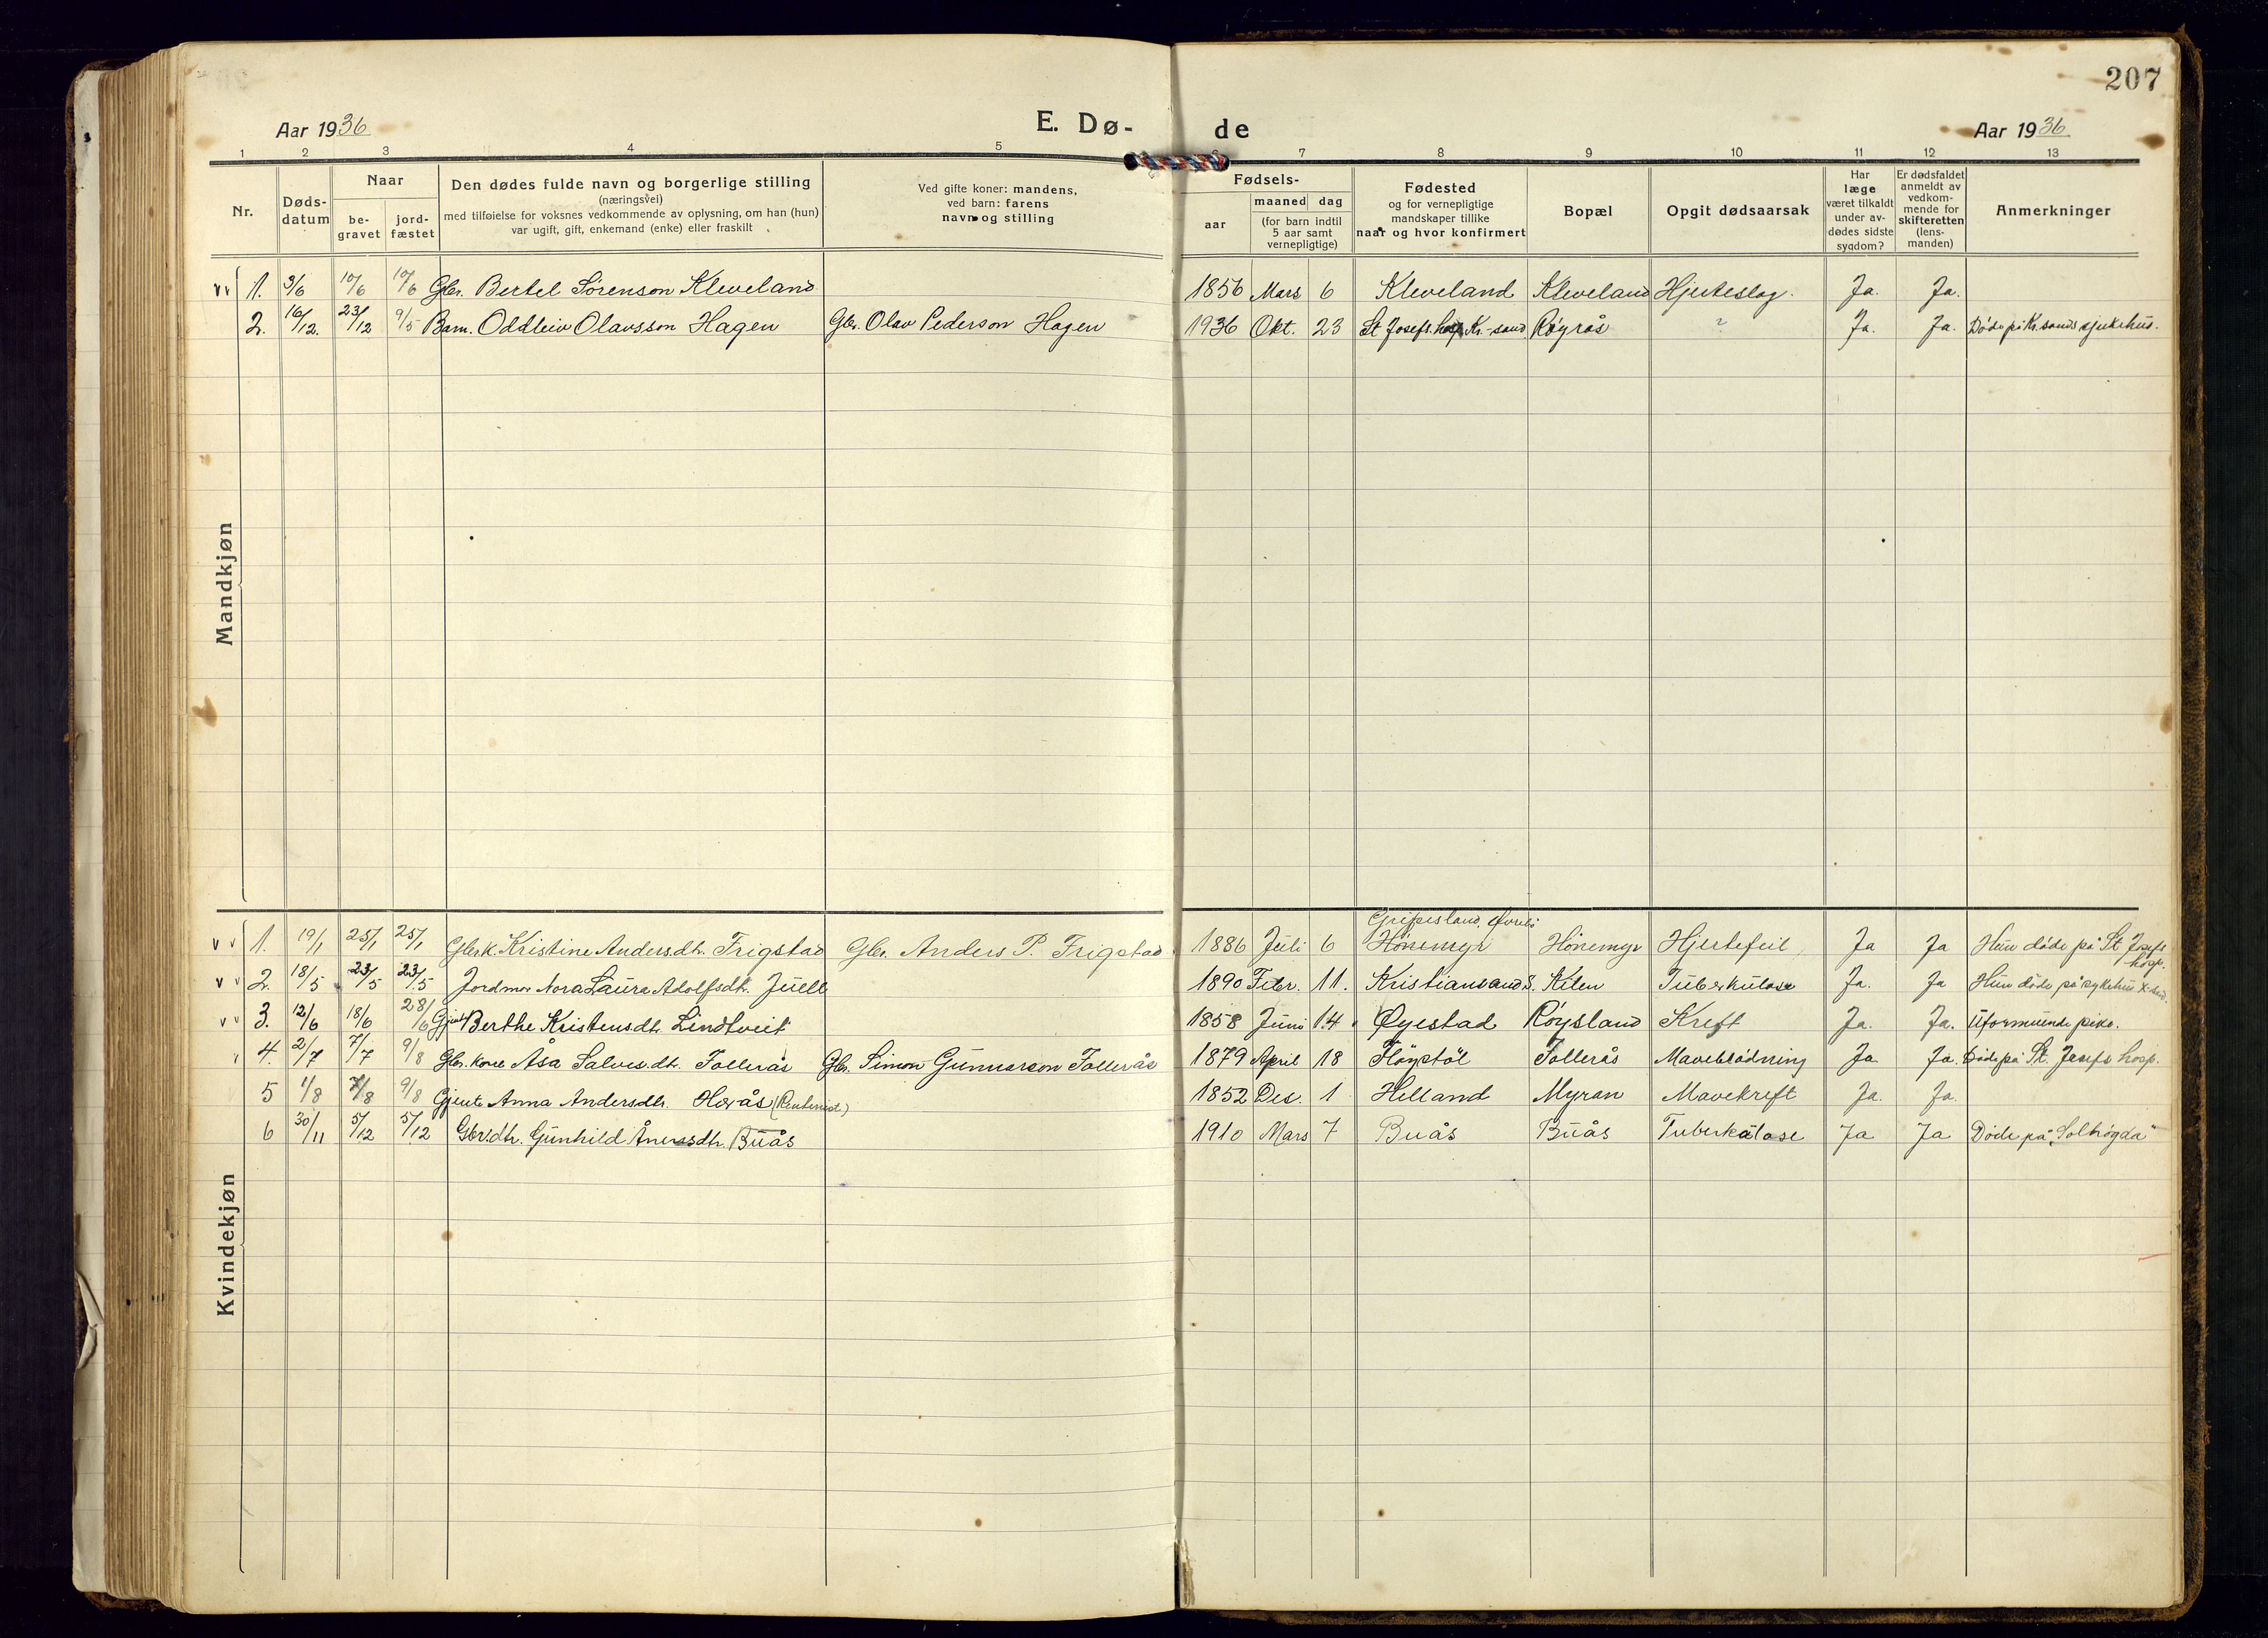 207
Aar 1936 E. Dø- de Aar 1936
1 2 3 4 5 7 8 9 10 11 12 13
Nr.
Døds-
datum
Naar
be-
gravet
jord-
fæstet
Den dødes fulde navn og borgerlige stilling
(næringsvei)
med tilføielse for voksnes vedkommende av oplysning, om han (hun)
var ugift, gift, enkemand (enke) eller fraskilt
Ved gifte koner: mandens,
ved barn: farens
navn og stilling
Fødsels-
aar
maaned dag
(for barn indtil
5 aar samt
vernepligtige)
Fødested
og for vernepligtige
mandskaper tillike
naar og hvor konfirmert
Bopæl
Opgit dødsaarsak
Har
læge
været tilkaldt
under av-
dødes sidste
sygdom?
Er dødsfaldet
anmeldt av
vedkom-
mende for
skifteretten
(lens-
manden)
Anmerkninger
Mandkjøn
1. 3/6 10/6 10/6 Gbr. Bertel Sørenson Kleveland 1856 Mars 6 Kleveland Kleveland Hjerteslag. Ja. Ja.
2. 16/12. 23/12 9/5 Barn. Oddleiv Olavsson Hagen Gbr. Olav Pederson Hagen 1936 Okt. 23 St Josefs. hosp. Kr.-sand. Røyrås ? Ja. Ja. Døde på Kr.sands sjukehus.
Kvindekjøn
Gripesland,
1. 19/1 25/1 25/1 Gbrk. Kristine Andersdtr. Frigstad Gbr. Anders P. Frigstad 1886 Juli 6 Hønemyr Hønemyr Hjertefeil Ja Ja Hun døde på St. Josefs
hosp.
2. 18/5 23/5 23/5 Jordmor Nora Laura Adolfsdtr. Juell 1890 Febr. 11. Kristiansand S. Kilen Tuberkulose Ja. Ja Hun døde på sykehus K-sand.
3. 12/6 18/6 28/6 Gjent Berthe Kristensdtr. Lindtveit 1858 Juni 14. Øyestad Røysland Kreft Ja. Ja. Uformuende pike.
4. 2/7 7/7 9/8 Gbr. kone Åsa Salves.dtr. Tollerås Gbr. Simon Gunnarson Tollerås 1879 April 18 Fløystøl Tollerås Maveblødning Ja Ja. Døde på St. Josefs hosp.
5 1/8 7/8 9/8 Gjente Anna Andersdtr. 1852 Des. 1 Helland Myran Mavekreft Ja. Ja.
6 30/11 5/12 5/12 Gbr.dtr. Gunhild Ånenssdtr. Buås 1910 Mars 7 Buås Buås Tuberkulose Ja Ja Døde på „Solhøgda"